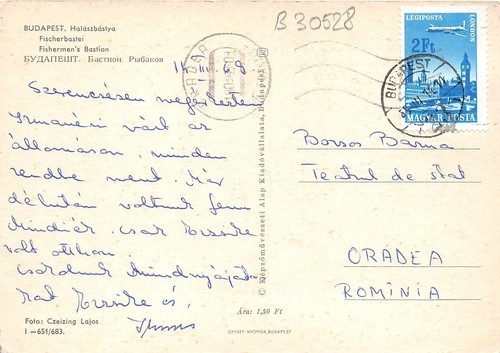 BUDAPEST. Halászbástya
Fischerbastei
Fishermen's Bastion
БУДАПЕШТ. Бастион Рыбаков
B 30528
14 III 68
Szerencsésen megérkeztem
várt az
állomáson, minden
rendbe ment. Már
délután voltunk fenn
csak Erzsike
volt otthon.
Csókolunk
Erzsike és
Foto: Czeizing Lajos
I —651/683.
© Képzőművészeti Alap Kiadóvállalata, Budapest
Ára: 1,50 Ft
OFFSET-NYOMDA, BUDAPEST
LÉGIPOSTA
LONDON
2Ft
MAGYAR POSTA
BUDAPEST
Borsos Barna
Teatrul de stat
ORADEA
ROMINIA